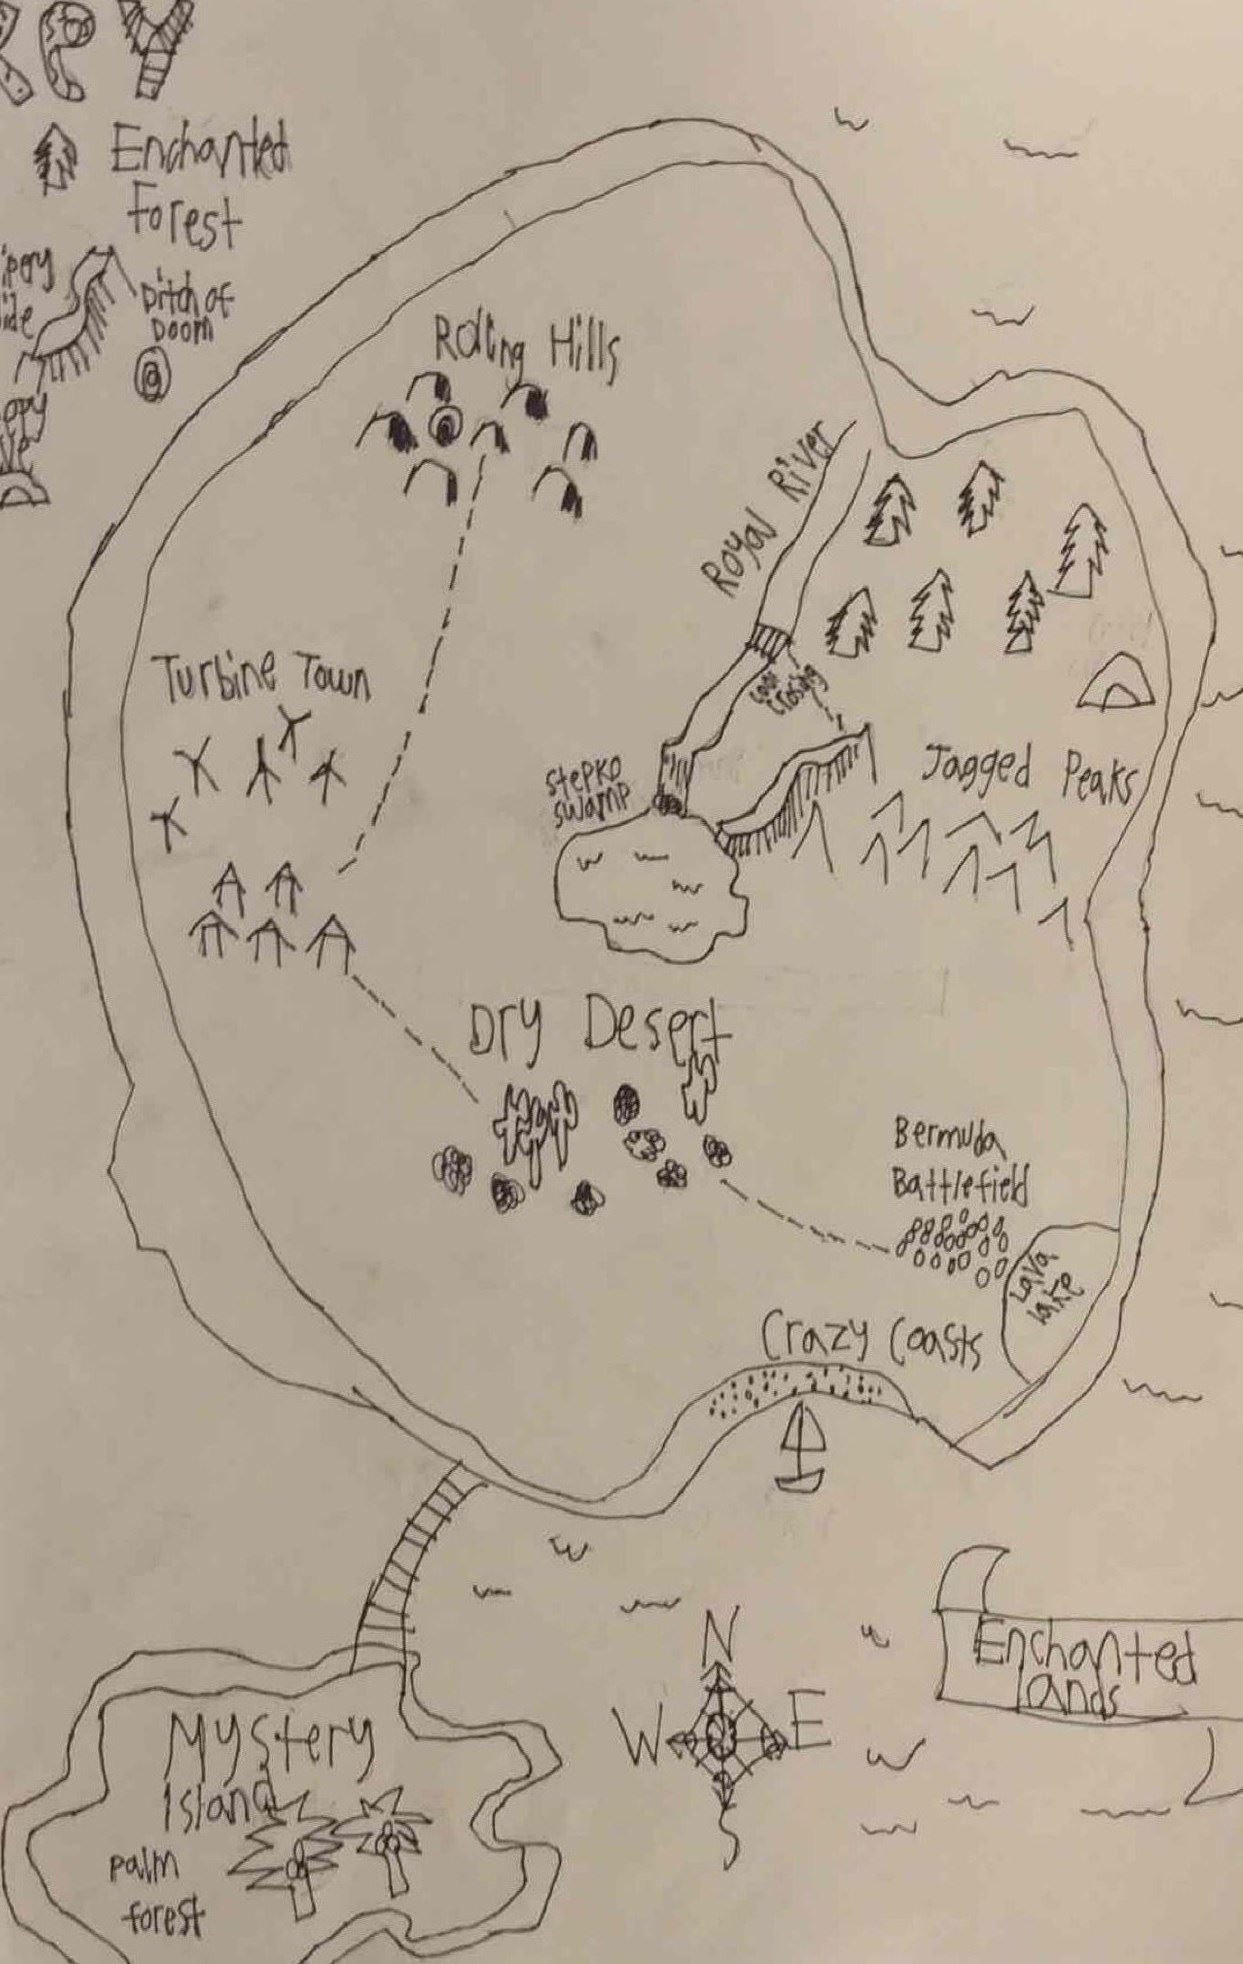 Key
Enchanted
Forest
Ditch of
Doom
Rolling Hills
Royal River
Turbine Town
Stepko
Swamp
Jagged Peaks
Dry Desert
Bermuda
Battlefield
Lava
Lake
Crazy Coasts
N
W E
S
Enchanted
lands
Mystery
Island
palm
forest